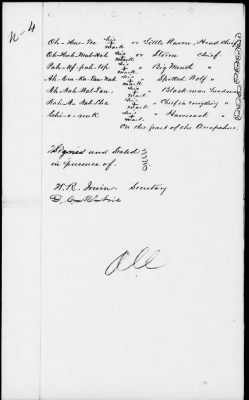 N-4
Oh-Has-Tee his x mark or Little Raven, Head Chief
Oh-Hah-Mah-Hah his x mark or Storm Chief
Pah-Uf-pah-top his x mark or Big Mouth "
Ah-Cra-Ka-Tau-Nah his x mark or Spotted Wolf "
Ah-Nah-Wat-Tan his x mark or Black man
Nah-A. Nah-Cha his x mark or Chief in everything "
Chi-e-nuk his x mark or Haversack "
On the part of the Arapahoes.
Signed and Sealed
in presence of.
W. R. Irwin Secretary